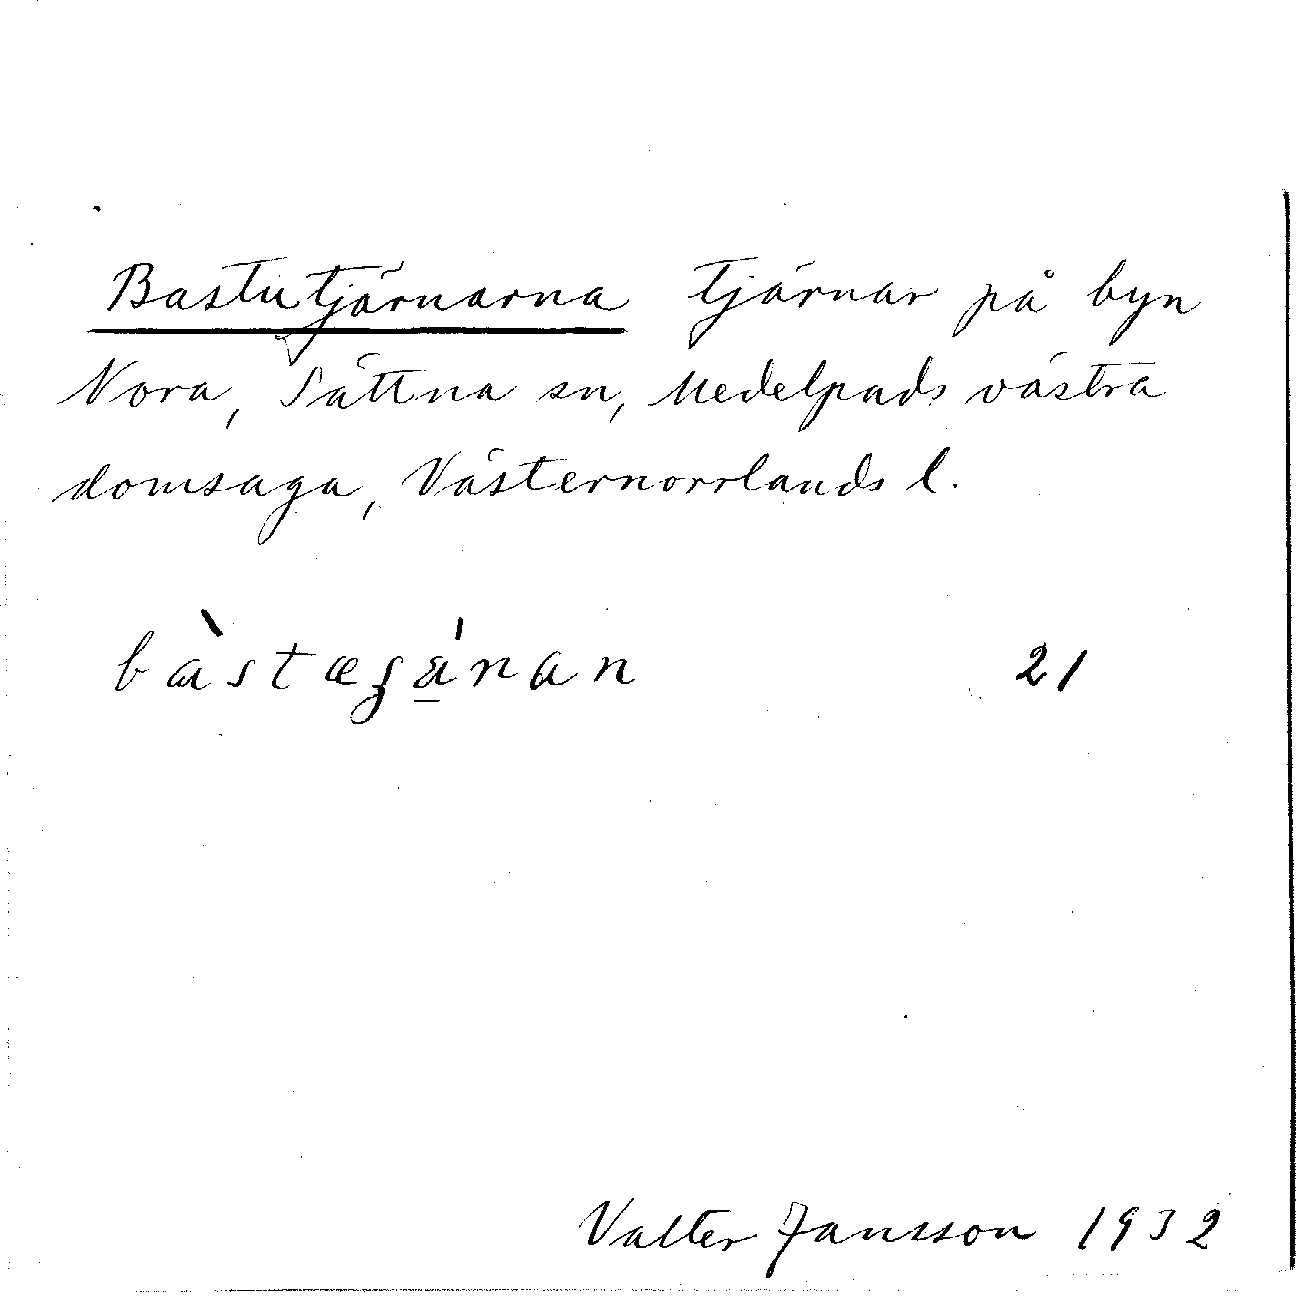 Bastutjärnarna tjärnar på byn
Nora, Sättna sn, Medelpads västra
domsaga, Västernorrlands l.
21
Valter Jansson 1932